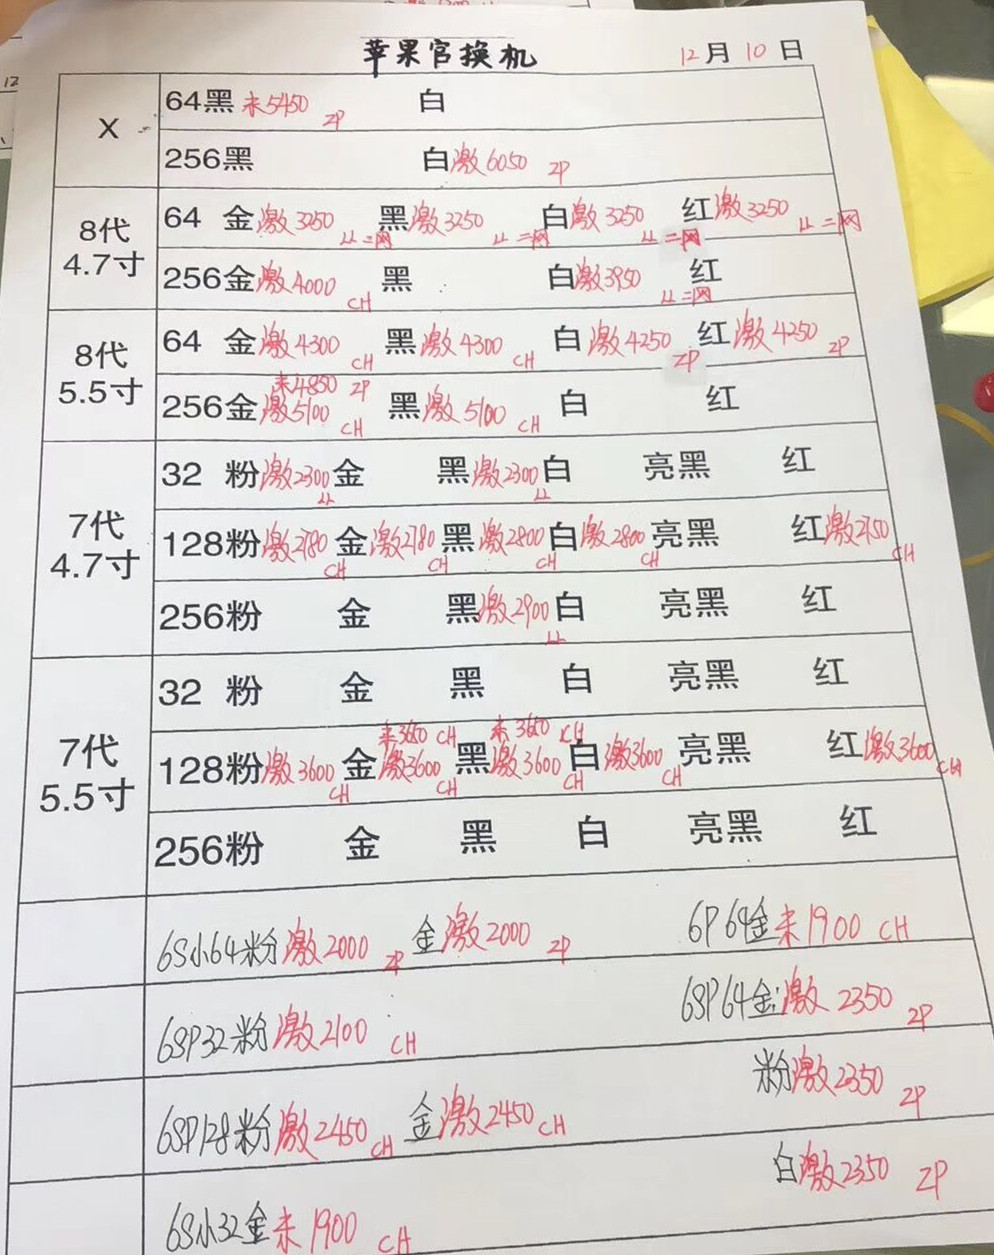 苹果官换机 12月10日
X
64黑未5450 ZP 白
256黑 白激6050 ZP
8代
4.7寸
64 金激3250 LL二网 黑激3250 LL二网 白激3250 LL二网 红激3250 LL二网
256金激4000 CH 黑 白激3950 LL二网 红
8代
5.5寸
64 金激4300 CH 黑激4300 CH 白激4250 ZP 红激4250 ZP
未4850 ZP
256金激5100 CH 黑激5100 CH 白 红
7代
4.7寸
32 粉激2300 LL 金 黑激2300 LL 白 亮黑 红
128粉激2780 CH 金激2780 CH 黑激2800 CH 白激2800 CH 亮黑 红激2750 CH
256粉 金 黑激2900 LL 白 亮黑 红
7代
5.5寸
32 粉 金 黑 白 亮黑 红
未3650 CH 未3650 CH
128粉激3600 CH 金激3600 CH 黑激3600 CH 白激3600 CH 亮黑 红激3600 CH
256粉 金 黑 白 亮黑 红
6S小64粉激2000 ZP 金激2000 ZP 6P64金未1900 CH
6SP32粉激2100 CH 6SP64金激2350 ZP
粉激2350 ZP
6SP128粉激2450 CH 金激2450 CH
白激2350 ZP
6S小32金未1900 CH